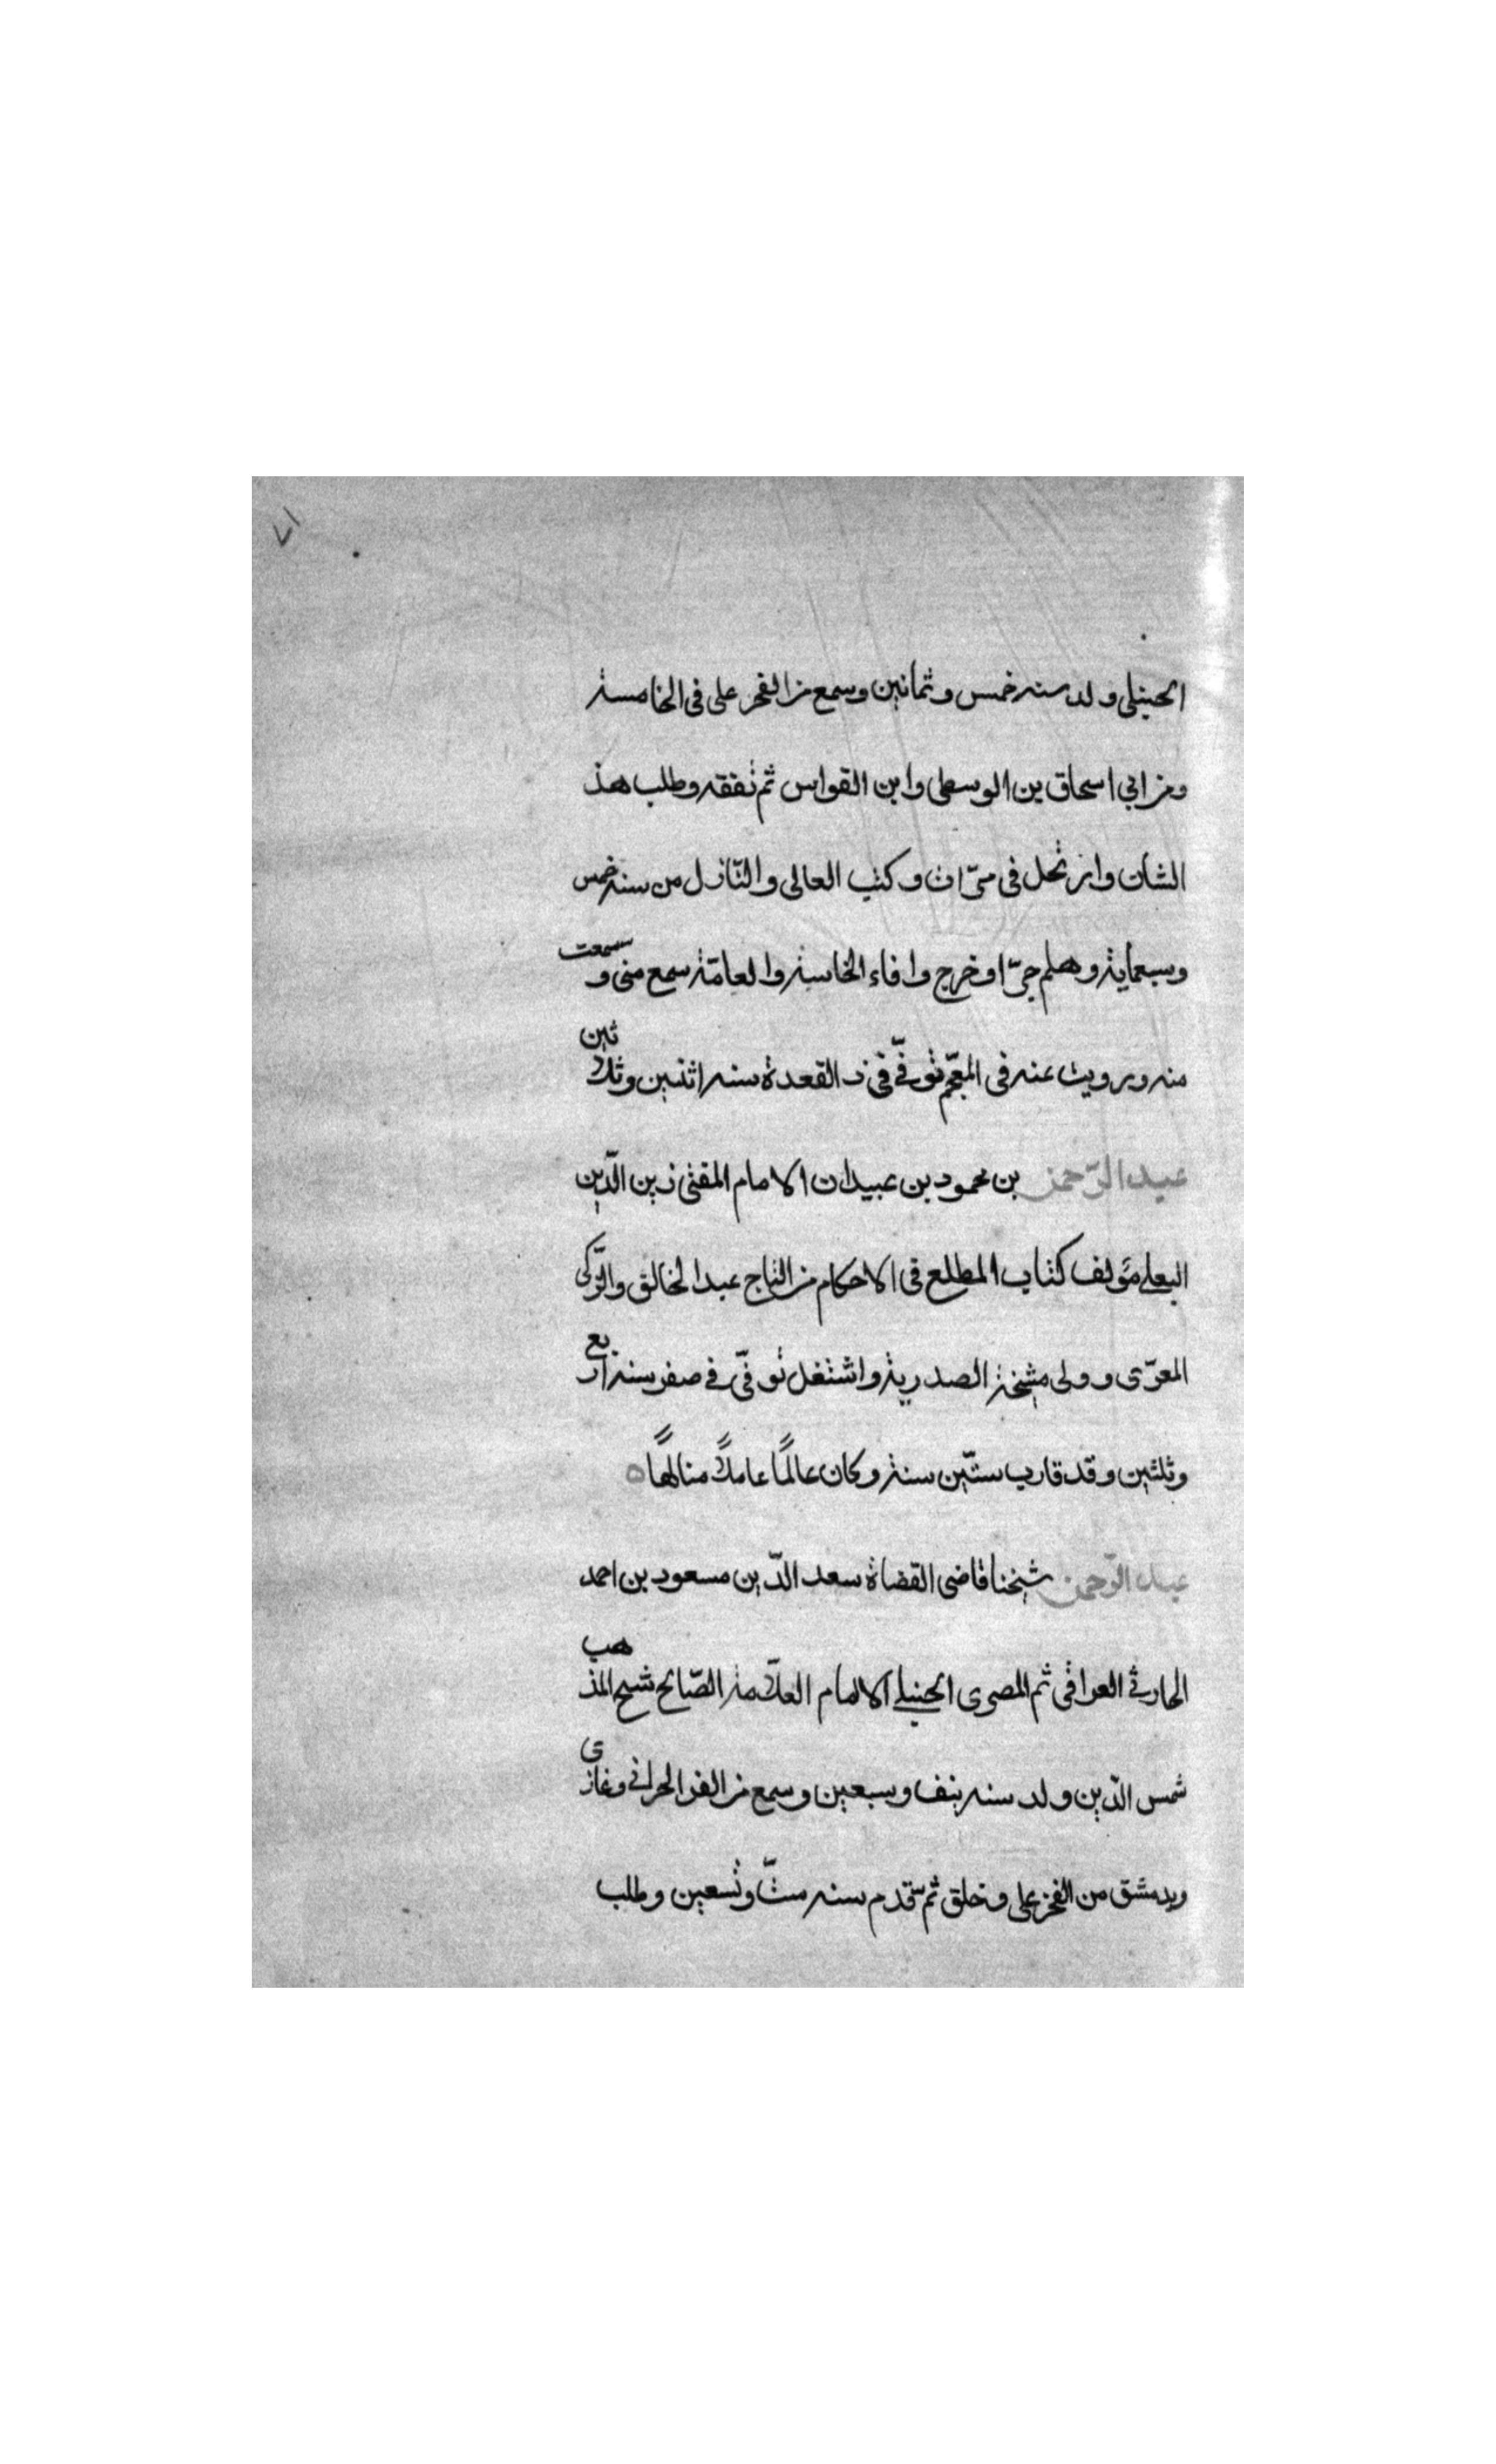 ٧١
الحنبلى ولد سنه خمس وثمانين وسمع من الفخر على فى الخامسة
ومن ابي اسحاق بن الوسطى وابن القواس ثم تفقه وطلب هذ
الشان وارتحل فى مرّات وكتب العالى والنّازل من سنه خمس
وسبعماية وهلم جرّا وخرج وافاء الخاسة والعامّة سمع منى وسمعت
منه ورويت عنه فى المعجم توفّي في ذ القعدة سنه اثنين وثلاثين
عبد الرّحمن بن محمود بن عبيدان الامام المفتى زين الدّين
البعلى مؤلف كتاب المطلع فى الاحكام من التاج عبد الخالق والتّركى
المعرّى وولى مشيخة الصدرية واشتغل توفّي في صفر سنة اربع
وثلثين وقد قارب ستّين سنة وكان عالمًا عاملاً متالهًا ه
عبد الرّحمن شيخنا قاضى القضاة سعد الدّين مسعود بن احمد
الحارثي العراقى ثم المصرى الحنبلي الامام العلّامة الصّالح شيخ المذهب
شمس الدّين ولد سنه نيف وسبعين وسمع من العز الحراني وغازى
وبدمشق من الفخر على وخلق ثم قدم سنه ستّ وتسعين وطلب